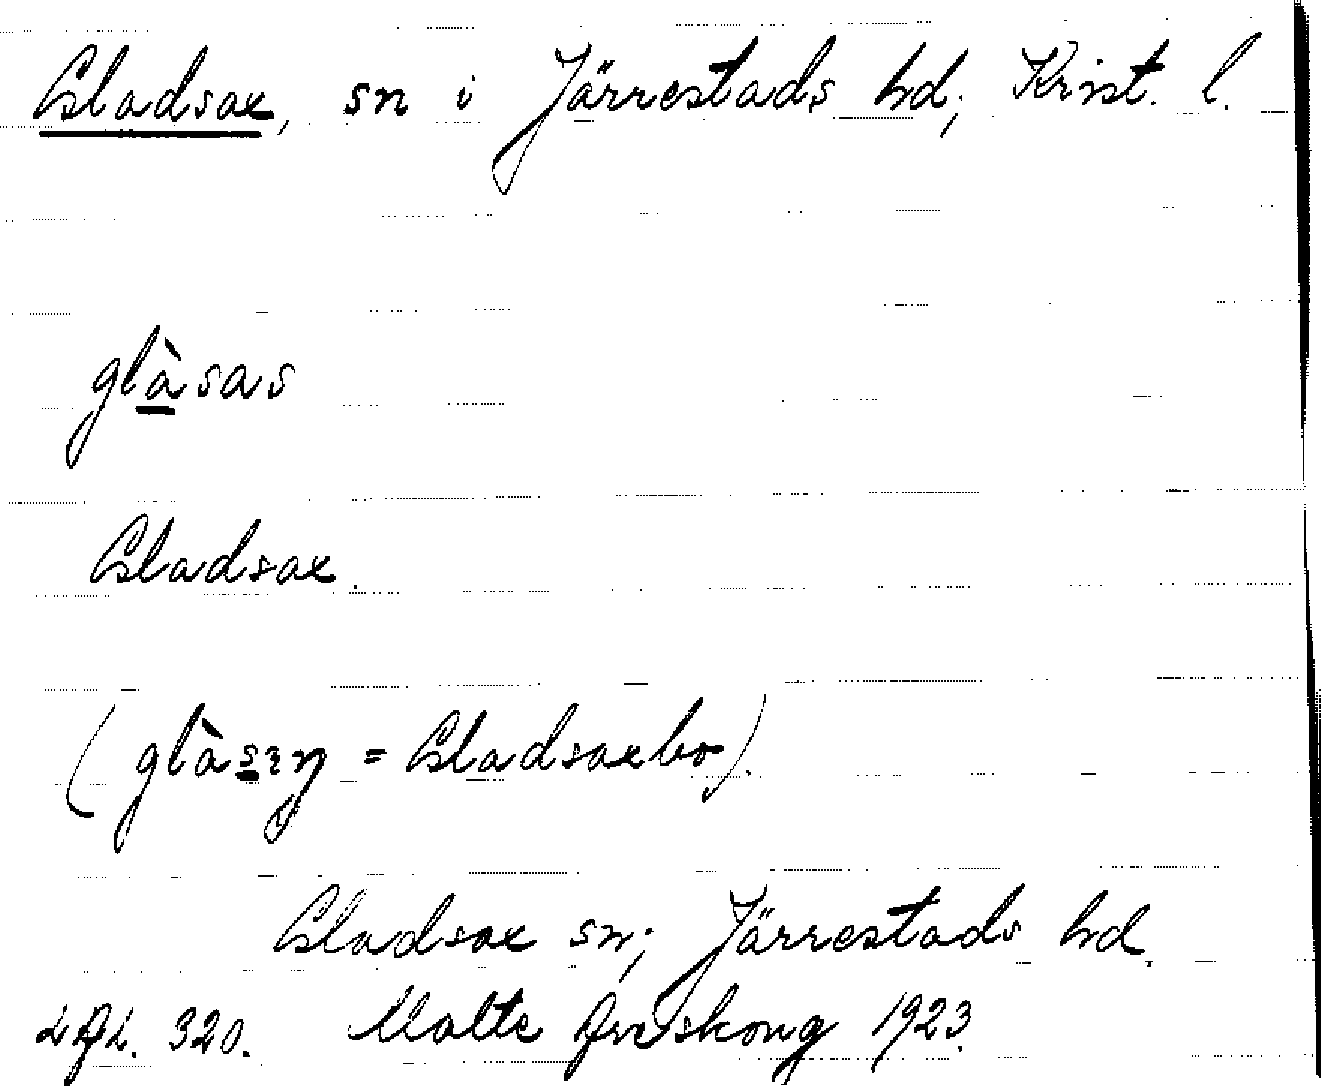 Gladsax, sn i Järrestads hd; Krist. l.
glàsas
Gladsax.
(glàsɪŋ = Gladsaxbo).
Gladsax sn; Järrestads hd.
320. Malte 1923.